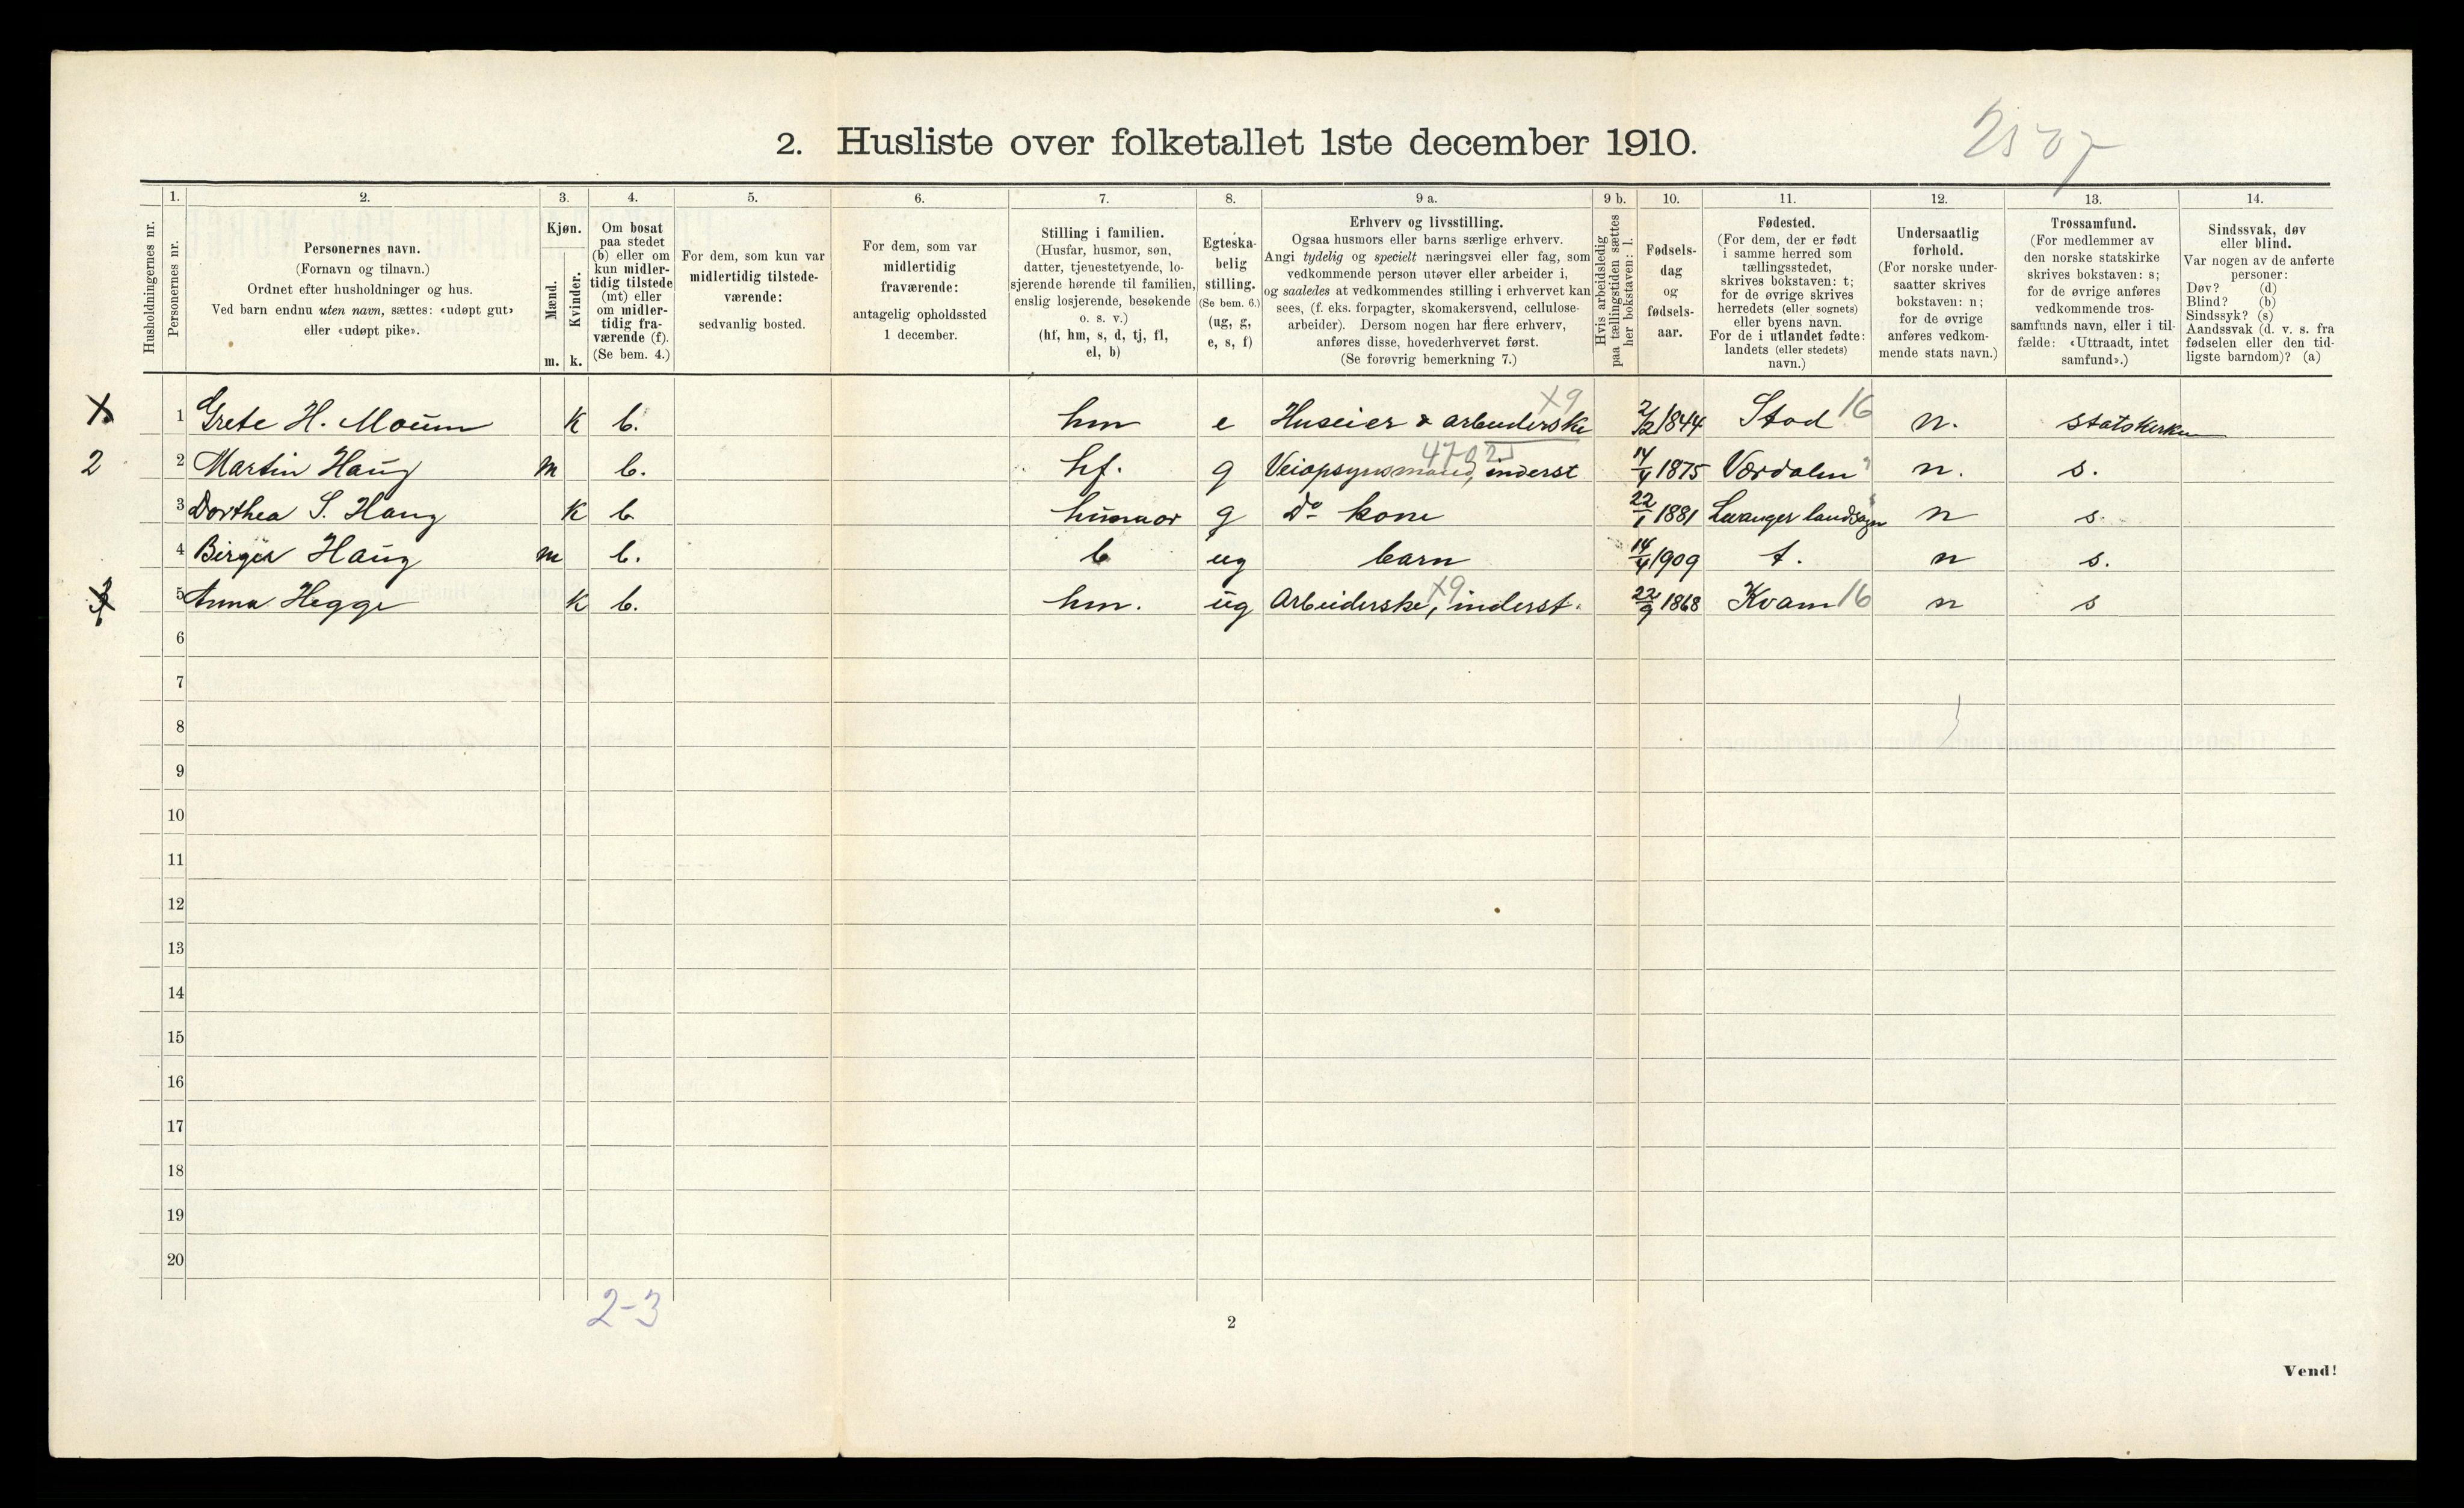 2. Husliste over folketallet 1ste december 1910.
Husholdningernes nr.
1.
Personernes nr.
2.
Personernes navn.
(Fornavn og tilnavn.)
Ordnet efter husholdninger og hus.
Ved barn endnu uten navn, sættes: «udøpt gut»
eller «udøpt pike».
3.
Kjøn.
Mænd.
Kvinder.
m. k.
4.
Om bosat
paa stedet
(b) eller om
kun midler-
tidig tilstede
(mt) eller
om midler-
tidig fra-
værende (f).
(Se bem. 4.)
5.
For dem, som kun var
midlertidig tilstede-
værende:
sedvanlig bosted.
6.
For dem, som var
midlertidig
fraværende:
antagelig opholdssted
1 december.
7.
Stilling i familien.
(Husfar, husmor, søn,
datter, tjenestetyende, lo-
sjerende hørende til familien,
enslig losjerende, besøkende
o. s. v.)
(hf, hm, s, d, tj, fl,
el, b)
8.
Egteska-
belig
stilling.
(Se bem. 6.)
(ug, g,
e, s, f)
9 a.
Erhverv og livsstilling.
Ogsaa husmors eller barns særlige erhverv.
Angi tydelig og specielt næringsvei eller fag, som
vedkommende person utøver eller arbeider i,
og saaledes at vedkommendes stilling i erhvervet kan
sees, (f. eks. forpagter, skomakersvend, cellulose-
arbeider). Dersom nogen har flere erhverv,
anføres disse, hovederhvervet først.
(Se forøvrig bemerkning 7.)
9 b.
Hvis arbeidsledig
paa tællingstiden sættes
her bokstaven: l.
10.
Fødsels-
dag
og
fødsels-
aar.
11.
Fødested.
(For dem, der er født
i samme herred som
tællingsstedet,
skrives bokstaven: t;
for de øvrige skrives
herredets (eller sognets)
eller byens navn.
For de i utlandet fødte:
landets (eller stedets)
navn.)
12.
Undersaatlig
forhold.
(For norske under-
saatter skrives
bokstaven: n;
for de øvrige
anføres vedkom-
mende stats navn.)
13.
Trossamfund.
(For medlemmer av
den norske statskirke
skrives bokstaven: s;
for de øvrige anføres
vedkommende tros-
samfunds navn, eller i til-
fælde: «Uttraadt, intet
samfund».)
14.
Sindssvak, døv
eller blind.
Var nogen av de anførte
personer:
Døv? (d)
Blind? (b)
Sindssyk? (s)
Aandssvak (d. v. s. fra
fødselen eller den tid-
ligste barndom)? (a)
X9
1 Grete H. Moum K b. hm e Huseier & arbeiderske 2/2 1844 Stod 16 n. statskirken
4702
2 2 Martin Haug m b. hf. g Veiopsynsmand, inderst 14/4 1875 Værdalen n. s.
3 Dorthea S. Haug K b husmor g Do kone 22/1 1881 Levanger landsogn n s.
4 Birger Haug m b. b ug barn 14/4 1909 t. n s.
X9
5 Anna Hegge K b. hm. ug Arbeiderske, inderst. 22/9 1868 Kvam 16 n s
6
7
8
9
10
11
12
13
14
15
16
17
18
19
20
2-3
2
Vend!